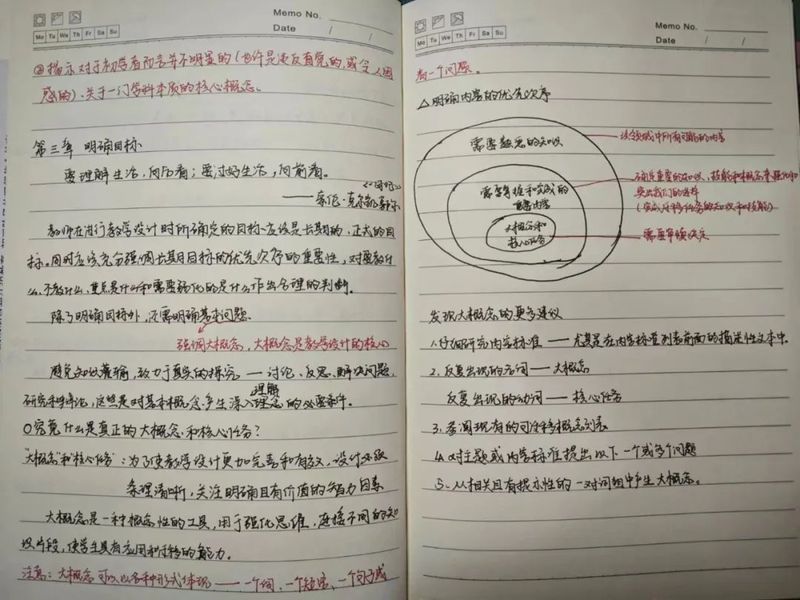 Memo No.
Mo Tu We Th Fr Sa Su
Date / /
②揭示对于初学者而言并不明显的(也许是违反直觉的,或令人困
惑的)、关于一门学科本质的核心概念。
第三章 明确目标
要理解生活,向后看;要过好生活,向前看。
——索伦·克尔凯郭尔
教师在进行教学设计时所确定的目标应该是长期的、正式的目
标。同时应该充分强调长期目标的优先次序的重要性,对要教什
么、不教什么、重点是什么和需要弱化的是什么作出合理的判断。
除了明确目标外,还需明确基本问题。
强调大概念,大概念是教学设计的核心
避免知识灌输,致力于真实的探究——讨论、反思、解决问题、
理解
研究和辩论,这些是对基本概念产生深入理念的必要条件。
○究竟什么是真正的大概念和核心任务?
"大概念"和"核心任务":为了使教学设计更加完善和有效,设计必须
条理清晰,关注明确且有价值的智力因素
大概念是一种概念性的工具,用于强化思维,连接不同的知
识片段,使学生具有应用和迁移的能力。
注意:大概念可以以各种形式体现——一个词、一个短语、一个句子或
Memo No.
Mo Tu We Th Fr Sa Su
Date / /
者一个问题。
△明确内容的优先次序
需要熟悉的知识
该领域中所有可能的内容
需要掌握和完成的
重要内容
大概念和
核心任务
需要审慎决定
发现大概念的更多建议
1.仔细研究内容标准——尤其是在内容标准列表前面的描述性文本中。
2.反复出现的名词——大概念
反复出现的动词——核心任务
3.查阅现有的可迁移概念列表
4.对主题或内容标准提出以下一个或多个问题
5.从相关且有提示性的一对词组中产生大概念。